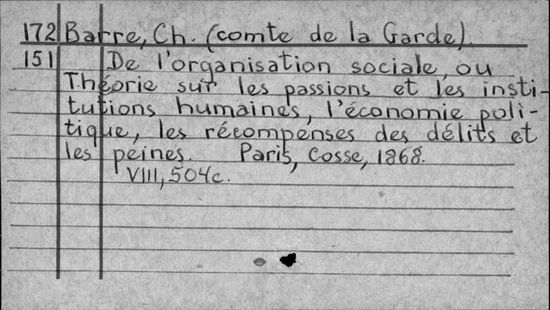 172 Barre, Ch. (comte de la Garde).
151 De l'organisation sociale, ou
Théorie sur les passions et les insti-
tutions humaines, l'économie poli-
tique, les récompenses des délits et
les peines. Paris, Cosse, 1868.
VIII, 504c.